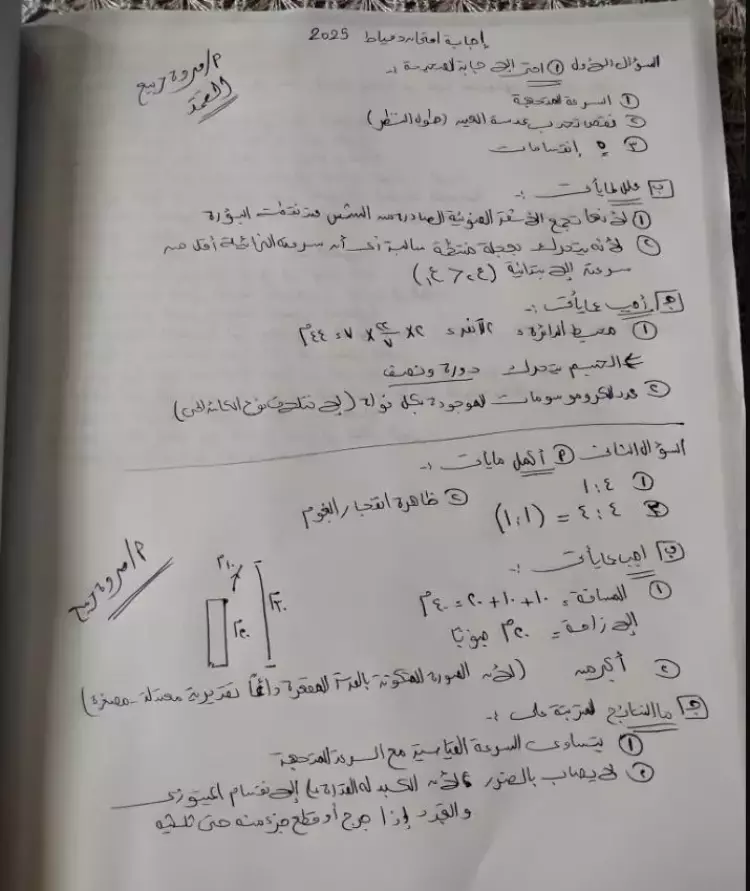 إجابة امتحان دمياط 2025
م/مروة ربيع
السؤال الأول ① اختر الإجابة الصحيحة :-
① السرعة المتجهة
② نقص تحدب عدسة العين (طول النظر)
③ ٥ إنقسامات
ب علل لما يأتى :-
① لأنها تجمع الأشعة الضوئية الصادرة من الشمس عند نقطة البؤرة
② لأنه يتحرك بعجلة منتظمة سالبة أى أن سرعته النهائية أقل من
سرعته الإبتدائية (ع٢ < ع١)
ج أجب عما يأتى :-
① محيط الدائرة = ٢ط نق = ٢ × ٢٢/٧ × ٧ = ٤٤م
← الجسم يتحرك دورة ونصف
② عدد الكروموسومات الموجودة بكل نواة (لاختلاف نوع الكائن الحى)
السؤال الثانى م أكمل ما يأتى :-
① ٤ : ١
② ظاهرة انفجار النجوم
③ ٤ : ٤ = (١ : ١)
ب أجب عما يأتى :-
م/مروة ربيع
① المسافة = ١٠ + ١٠ + ٢٠ = ٤٠م
الإزاحة = ٢٠م جنوبًا
١٠م
٣٠م
٢٠م
② أكبر من (لأن الصورة المتكونة بالعدسة المقعرة دائمًا تقديرية معتدلة - مصغرة)
ج ما النتائج المترتبة على :-
① يتساوى السرعة القياسية مع السرعة المتجهة
② لا يصاب بالضرر لأن الكبد له القدرة على الإنقسام الميتوزى
والتجدد إذا جرح أو قطع جزء منه حتى ثلثيه